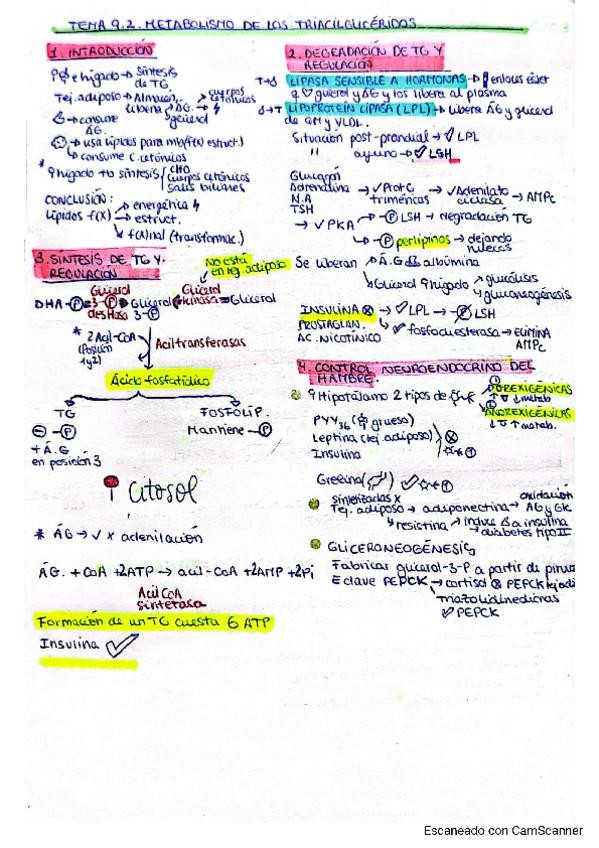 TEMA 9.2. METABOLISMO DE LOS TRIACILGLICÉRIDOS
1. INTRODUCCIÓN
e hígado → Síntesis
de TG
Tej. adiposo → Almacén
libera ÁG. → cuerpos
cetónicos
glicerol
→ consume
ÁG.
→ usa lípidos para mb (f(x) estruct.)
→ consume C. cetónicos
* hígado síntesis CHO
Cuerpos cetónicos
Sales biliares
CONCLUSIÓN:
Lípidos f(x) → energética
→ estruct.
→ f(x)nal (transformac.)
2. DEGRADACIÓN DE TG Y
REGULACIÓN
LIPASA SENSIBLE A HORMONAS → enlaces éster
glicerol y ÁG y los libera al plasma
LIPOPROTEIN LIPASA (LPL) → Libera ÁG y glicerol
de QM y VLDL.
Situación post-prandial → ✓ LPL
" ayuno → ✓ LSH
Glucagón
Adrenalina → ✓ Prot G → ✓ Adenilato → AMPc
N.A triméricas ciclasa
TSH
→ ✓ PKA → P LSH → degradación TG
→ P perlipinas → dejando
huecos
Se liberan → Á.G albúmina
→ Glicerol hígado → glucólisis
→ gluconeogénesis
INSULINA → ✓ LPL → P LSH
PROSTAGLAN. → ✓ fosfodiesterasa → ELIMINA
AC. NICOTÍNICO AMPc
3. SÍNTESIS DE TG Y
REGULACIÓN
No está
en tej. adiposo
Glicerol Glicerol
DHA-P → 3-P → Glicerol kinasa Glicerol
desHasa 3-P
* 2 Acil-CoA
(Posición
1 y 2)
Aciltransferasas
Ácido fosfatídico
TG FOSFOLIP.
- P Mantiene P
+ Á.G
en posición 3
↑ Citosol
* ÁG → ✓ x adenilación
ÁG. + CoA + 2ATP → acil-CoA + 2AMP + 2Pi
Acil CoA
sintetasa
Formación de un TG cuesta 6 ATP
Insulina ✓
4. CONTROL NEUROENDOCRINO DEL
HAMBRE.
Hipotálamo 2 tipos de
① OREXIGÉNICAS
↑ ↓ metab
② ANOREXIGÉNICAS
↓ ↑ metab.
PYY36 (grueso)
Leptina (tej. adiposo)
Insulina
Grelina
sintetizadas x
Tej. adiposo → adiponectina → oxidación
AG y GK
→ resistina → induce a insulina
→ diabetes tipo II
GLICERONEOGÉNESIS
Fabricar glicerol-3-P a partir de piruv
E clave PEPCK → cortisol PEPCK tej adi
→ Tiazolidinedionas
✓ PEPCK
Escaneado con CamScanner